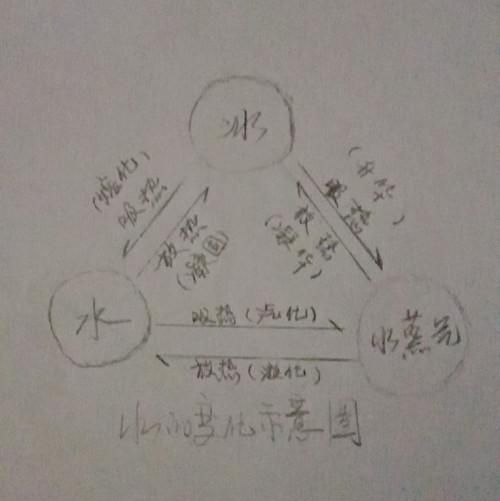 冰
(熔化)
吸热
放热
(凝固)
(升华)
吸热
放热
(凝华)
水
吸热(汽化)
放热(液化)
水蒸气
水的变化示意图